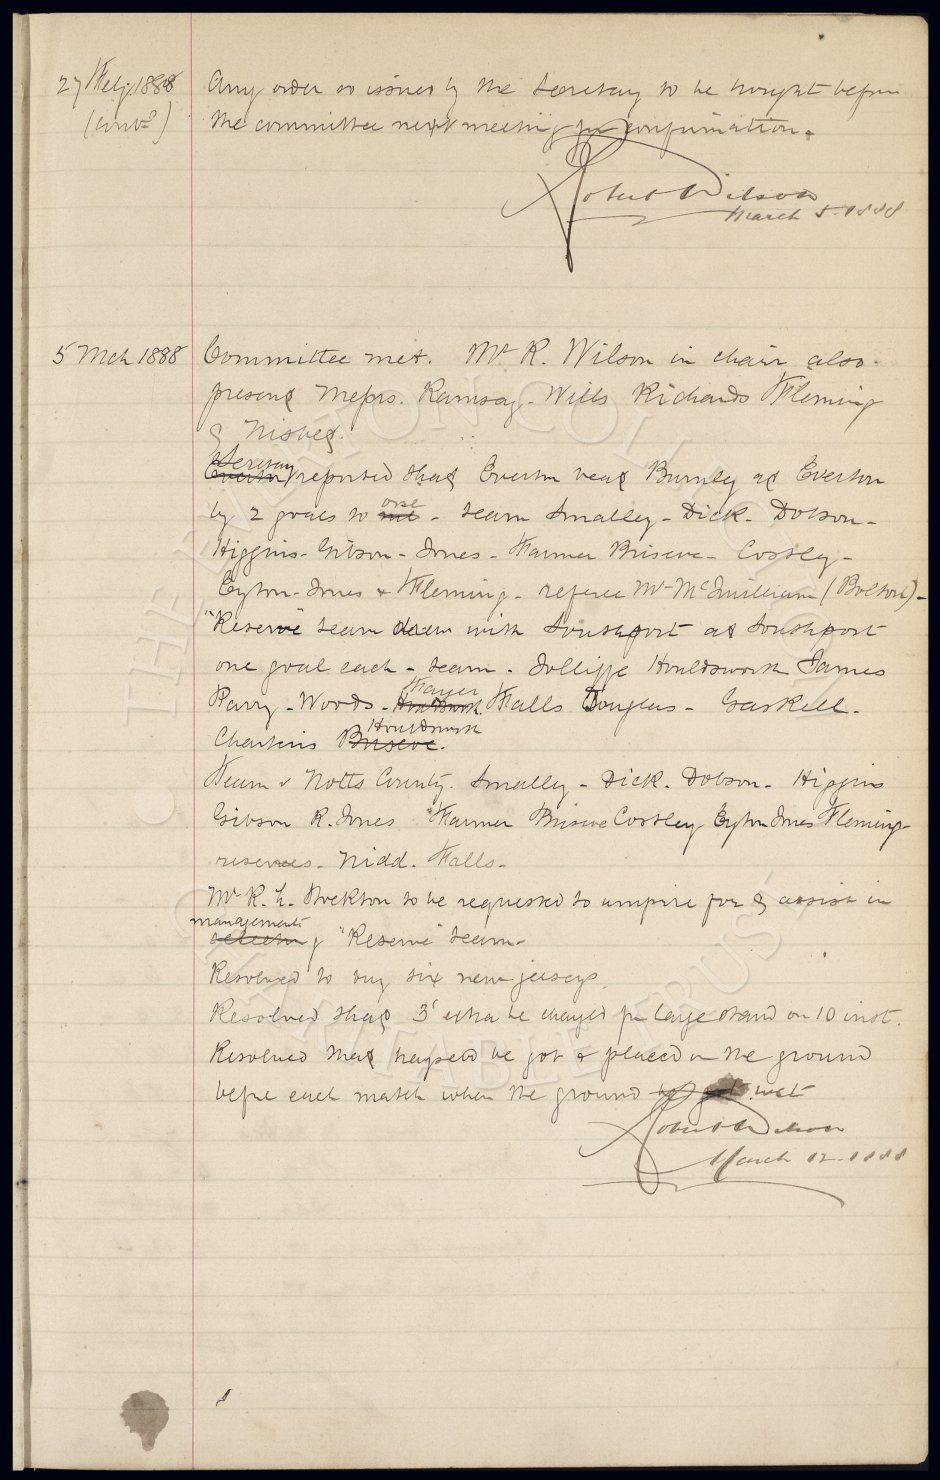 27 Feby 1888 Any order so issued by the Secretary to be brought before
(contd) the committee next meeting for confirmation.
Robert Wilson
March 5 - 1888
5 Mch 1888 Committee met. Mr R. Wilson in chair also
present Messrs. Ramsay - Wills Richards Fleming
& Nisbet.
Secretary
Everton reported that Everton beat Burnley at Everton
one
by 2 goals to nil - team Smalley - Dick - Dobson -
Higgins - Gibson - Jones - Farmer Briscoe - Costley -
Eyton-Jones & Fleming - referee Mr McQuilliam (Bolton) -
"Reserve team drew with Southport at Southport
one goal each - team - Jolliffe Houldsworth James
Fayer
Parry - Woods - Falls Douglas - Gaskell -
Houldsworth
Charteris Briscoe.
Team v Notts County. Smalley - Dick. Dobson - Higgins
Gibson R. Jones Farmer Briscoe Costley Eyton Jones Fleming -
reserves - Nidd. Falls -
Mr R. L. Stockton to be requested to umpire for & assist in
management
selecting of "Reserve" team -
Resolved to buy six new jerseys.
Resolved that 3d extra be charged for large stand on 10 inst.
Resolved that hayseed be got & placed on the ground
before each match when the ground wet
Robert Wilson
March 12 - 1888
THE EVERTON COLLECTION
CHARITABLE TRUST